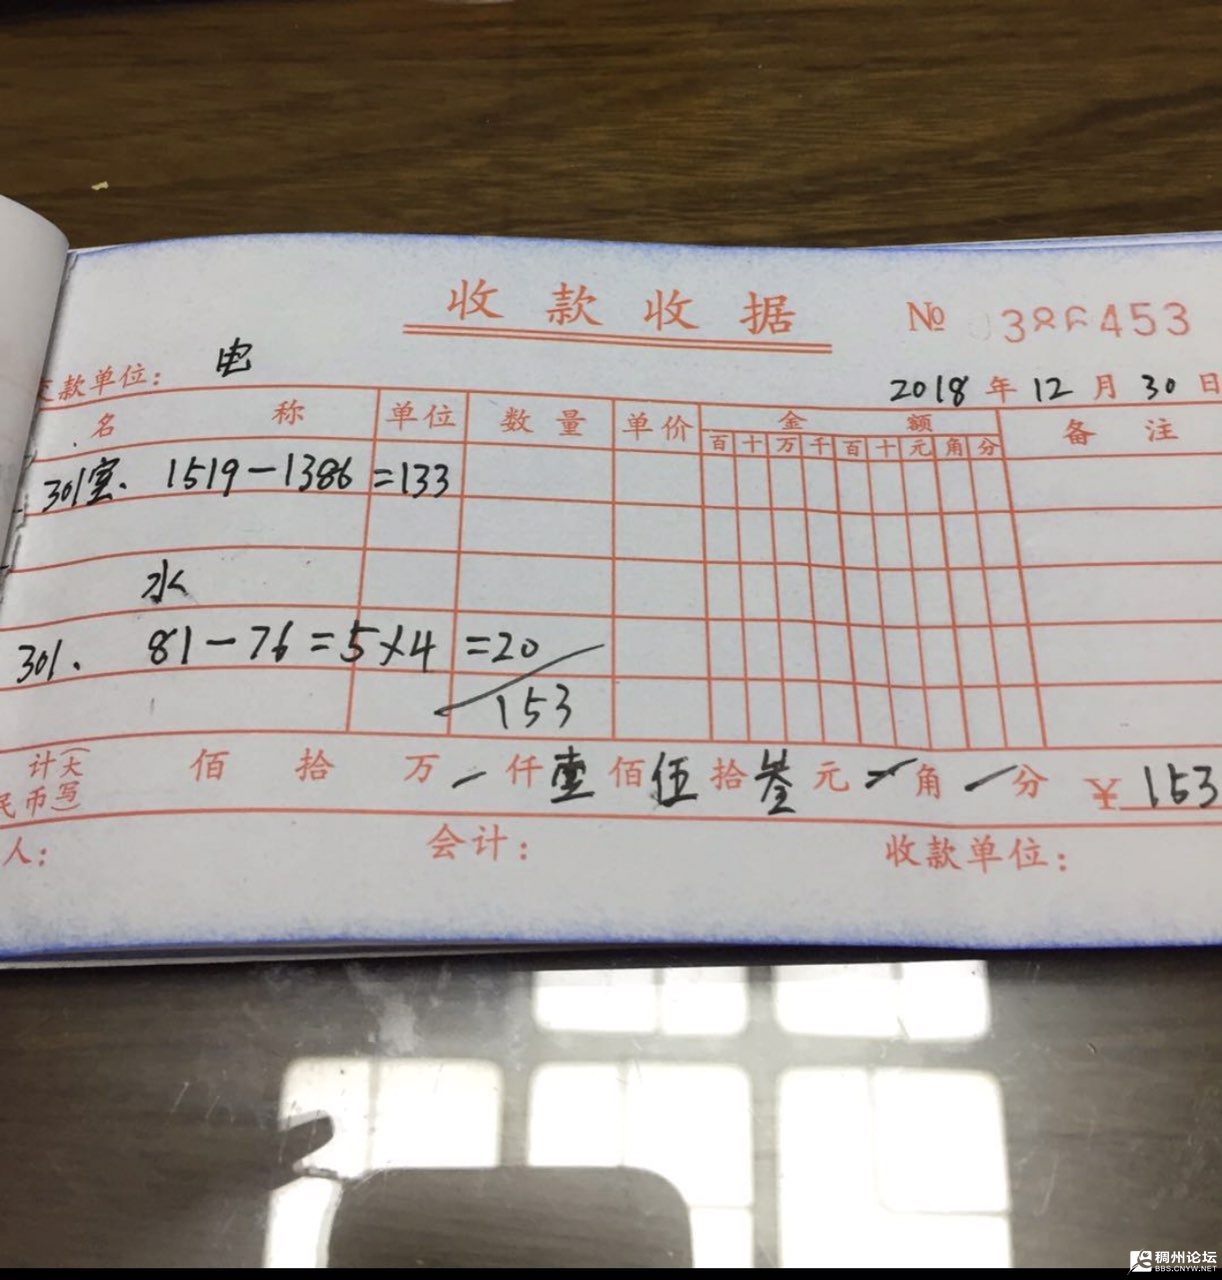 收款收据 № 386453
交款单位： 电 2018年12月30日
名称 单位 数量 单价 金额 备注
百 十 万 千 百 十 元 角 分
301室. 1519-1386=133
水
301. 81-76=5×4=20
153
计(大写) 佰 拾 万 一 仟 壹 佰 伍 拾 叁 元 一 角 一 分 ¥153
民币
人： 会计： 收款单位：
稠州论坛
BBS.CNYW.NET